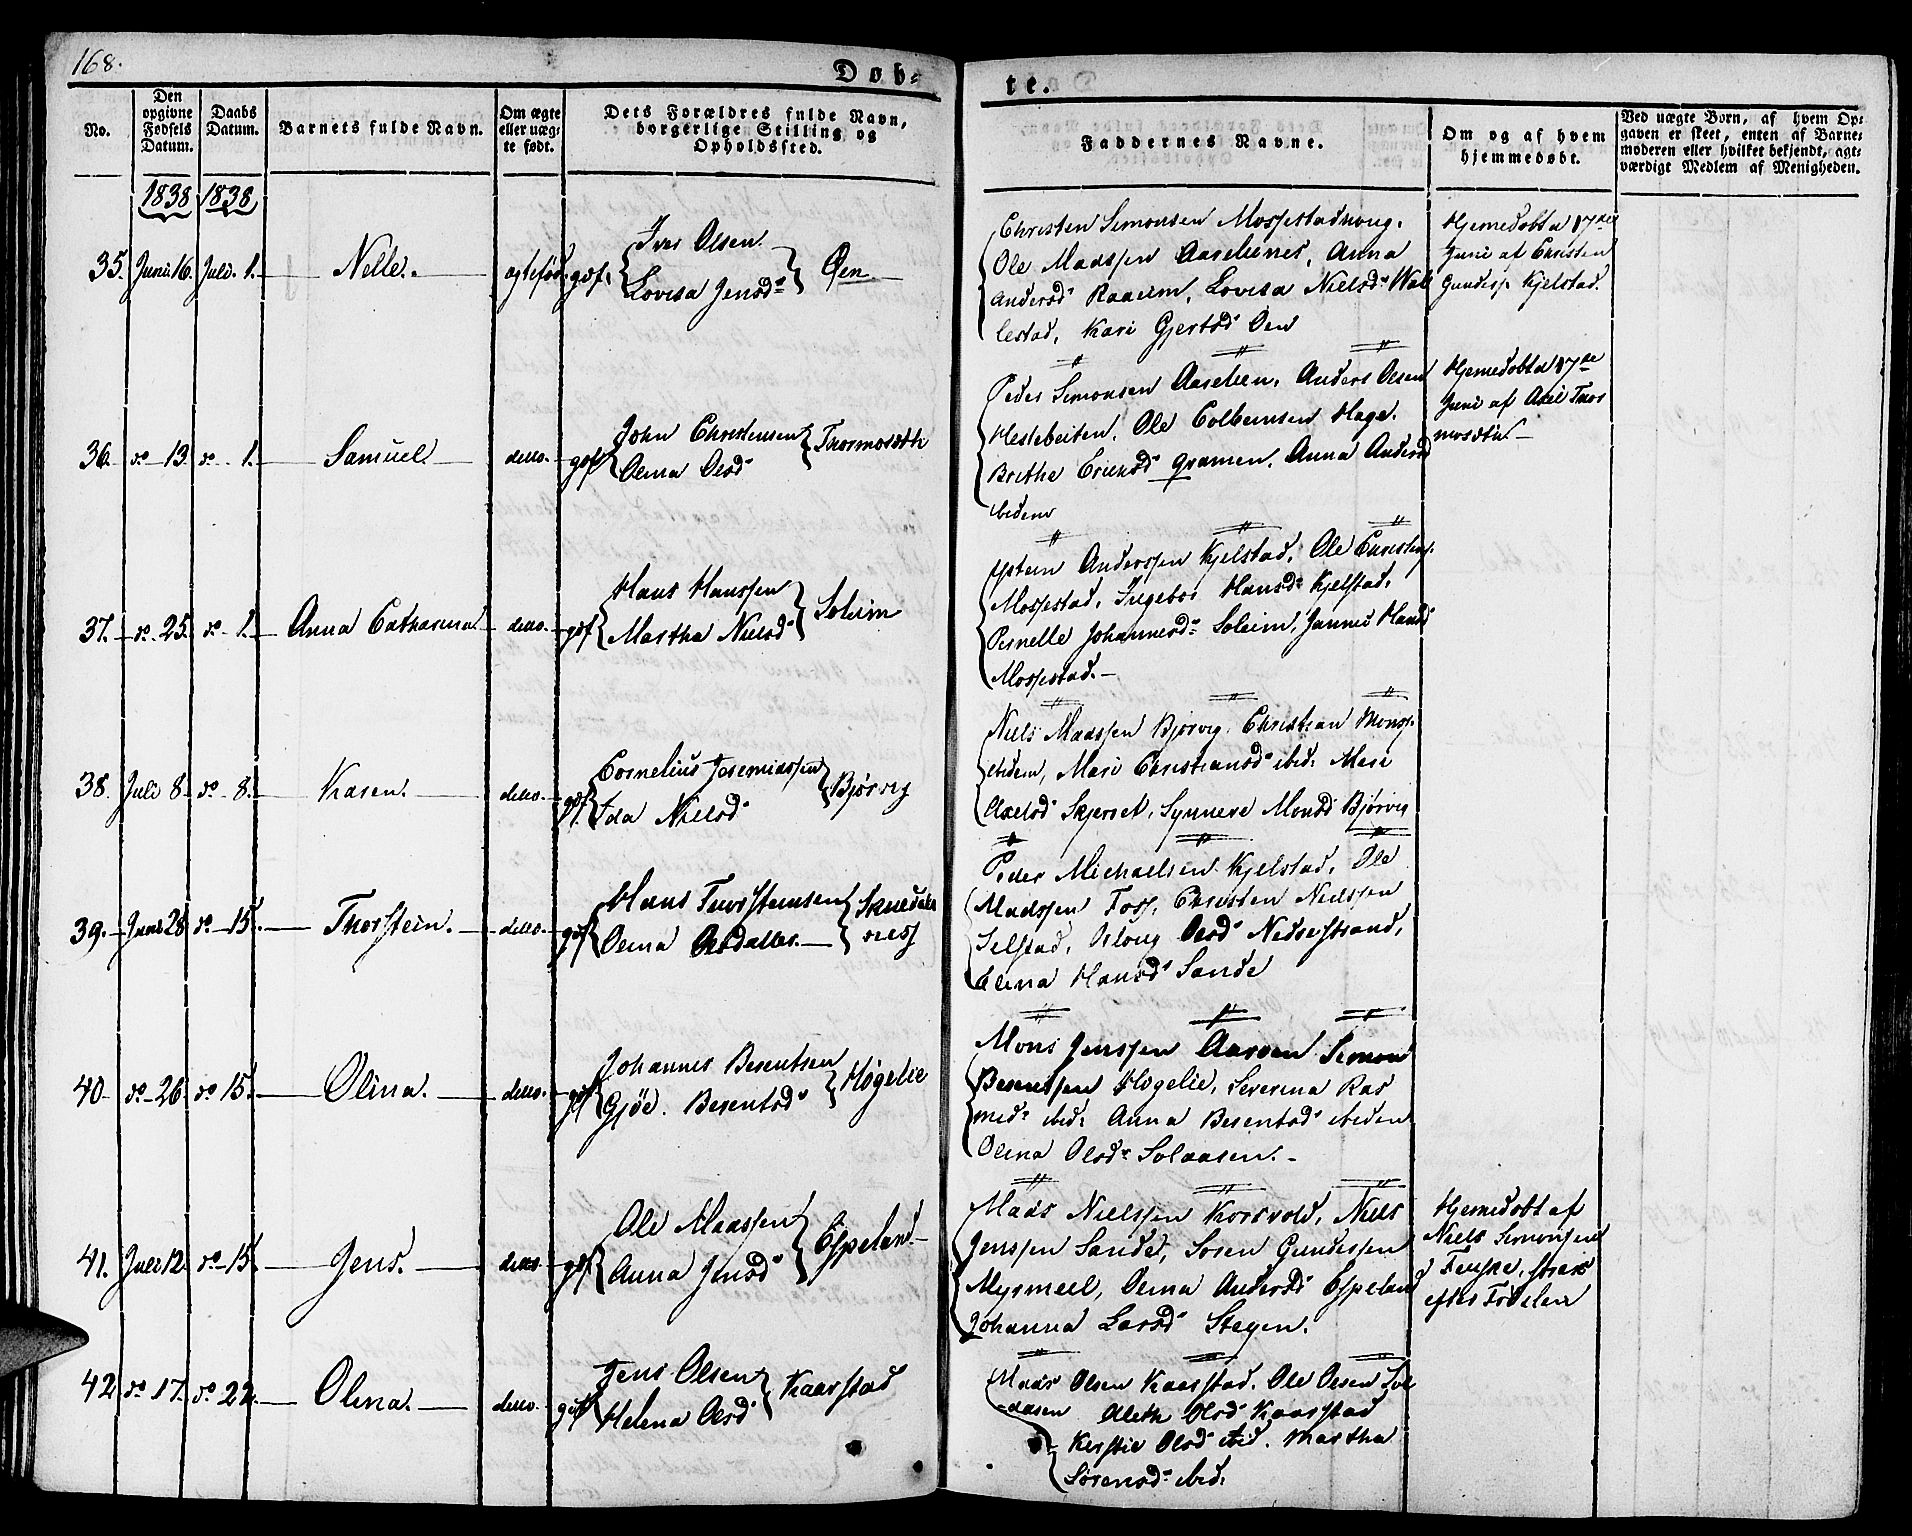 168.
Døb=
te.
No.
Den opgivne Fødsels Datum.
Daabs Datum.
Barnets fulde Navn.
Om ægte eller uæg= te født.
Dets Forældres fulde Navn, borgerlige Stilling og Opholdssted.
Faddernes Navne.
Om og af hvem hjemmedøbt.
Ved uægte Børn, af hvem Op= gaven er skeet, enten af Barne= moderen eller hvilket bekjendt, agt= værdigt Medlem af Menigheden.
1838 1838
35. Juni 16. Juli. 1. Nille. ægtefød. gdf.
Iver Olsen
Lovisa Jensd: Øen
Christen Simonsen Mossestadhoug.
Ole Madssen Aaselienes, Anna
Andersd: Raaeim, Lovisa Nielsd: Wal
lestad, Kari Gjertsd Øen
Hjemedøbt d 17de
Juni af Christen
Gunders. Kjelstad.
36. do 13. do 1. Samuel. ditto. gdf
John Christensen
Olina Olsd: Thormosæth
Peder Simonsen Aaselien, Anders Olsen
Hestebeiten, Ole Colbeinsen Hage.
Brithe Ericksd: Qvamen, Anna Andersd
ibidem
Hjemedøbt d 17de
Juni af Axel Thor
mosæth.
37. do 25. do 1. Anna Catharina ditto. gdf
Hans Hanssen
Martha Nielsd: Soleim
Ystein Anderssen Kjelstad, Ole Christens.
Mossestad, Ingebor Hansd: Kjelstad,
Pernelle Johannesd: Soleim, Hansd
Mossestad.
38. Juli 8. do 8. Karen. ditto. gdf.
Cornelius Jeremiassen
Ida Nielsd: Bjørvig
Niels Madssen Bjørvig, Christian Monss.
ibidem, Mari Christiansd: ibid: Mari
Axelsd: Skjerset, Synneve Monsd Bjørvig
39. Juni 28. do 15. Thorstein. ditto. gdf
Hans Thorsteinsen
Olina Olsdatter. Skuedals
ness
Peder Michaelsen Kjelstad, Ole
Madssen Foss, Christen Nielssen
Selstad, Olsd: Nedrestrand,
Elina Hansd: Sande
40 do 26. do 15. Olina. ditto. gdf
Johannes Berentsen
Gjøe. Berentsd: Høgelie
Mons Jenssen Aarøen Simon
Berentssen Høgelie, Severina Ras
med: ibid: Anna Berentsd: ibidem
Olina Olsd: Solaasen.
41. Juli 12. do 15. Jens. ditto. gdf
Ole Madssen
Anna Jensd: Espeland
Mads Nielssen Korsvold, Niels
Jenssen Sande, Søren Gunderssen
Myrmeel, Olina Andersd: Espeland
Johanna Larsd: Stegen.
Hjemedøbt af
Niels Simonsen
strax
efter Fødselen
42 do 17. do 22. Olina. ditto. gdf
Jens Olsen
Helena Olsd: Kaarstad
Mads Olsen Kaarstad, Ole Olsen Sol
aasen Aleth Olsd Kaarstad
Kirstie Olsd ibid. Martha
Sørensd: ibid: